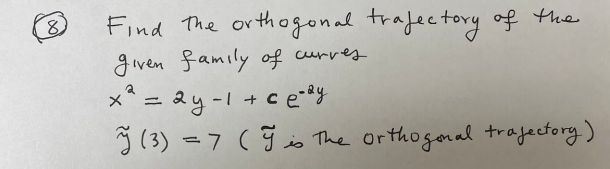 ⑧ Find the orthogonal trajectory of the
given family of curves
x² = 2y - 1 + c e^{-2y}
ỹ(3) = 7 (ỹ is the orthogonal trajectory)